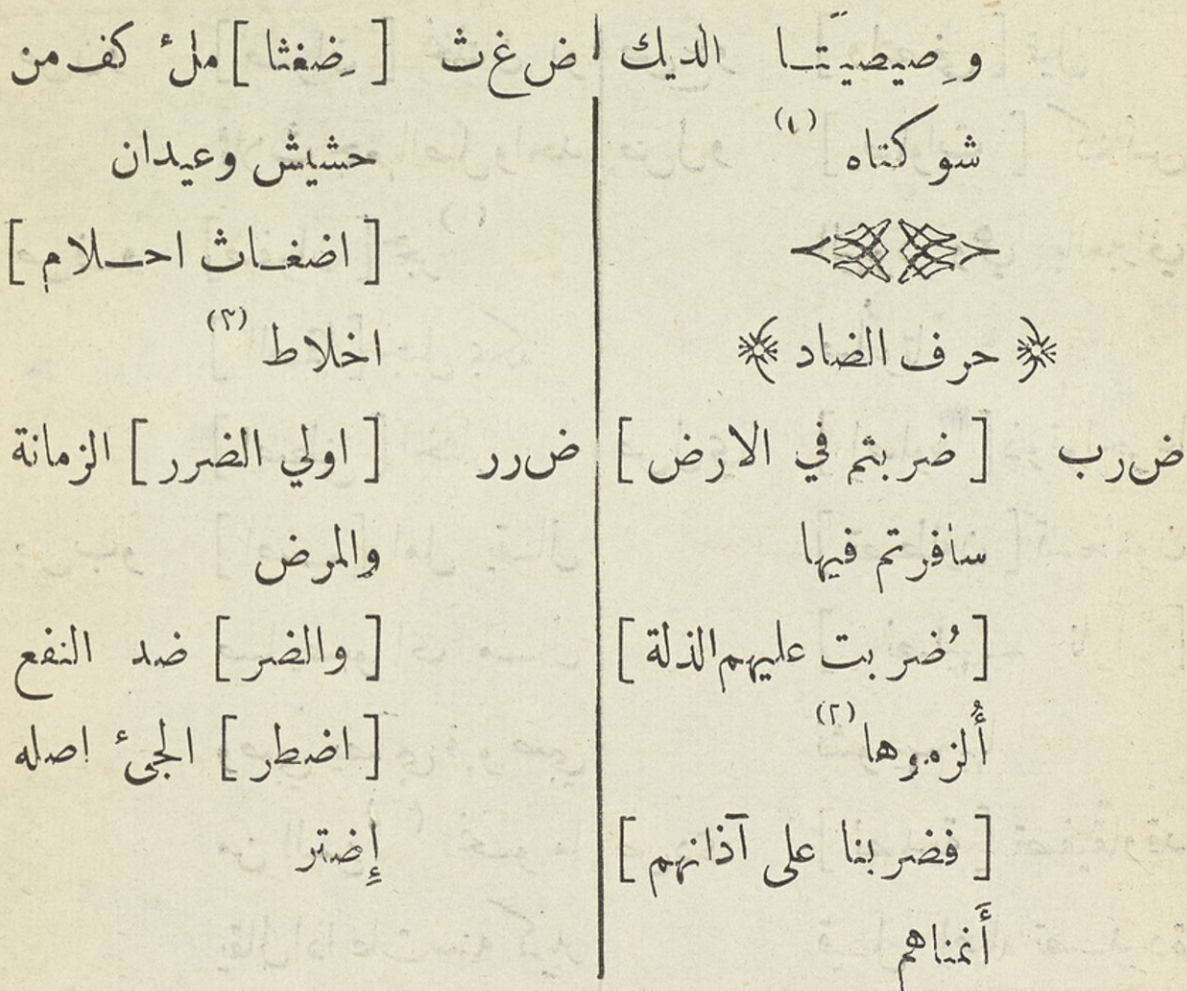 وِصيصيّتا الديك
شوكتاه (١)
حرف الضاد
ض ر ب [ ضربتم في الارض ]
سافرتم فيها
[ ضُربت عليهم الذلة ]
أُلزموها (٢)
[ فضربنا على آذانهم ]
أَنمناهم
ض غ ث [ ضِغثا ] ملء كف من
حشيش وعيدان
[ اضغاث احلام ]
اخلاط (٣)
ض ر ر [ اولي الضرر ] الزمانة
والمرض
[ والضر ] ضد النفع
[ اضطر ] الجئ اصله
إِضتر